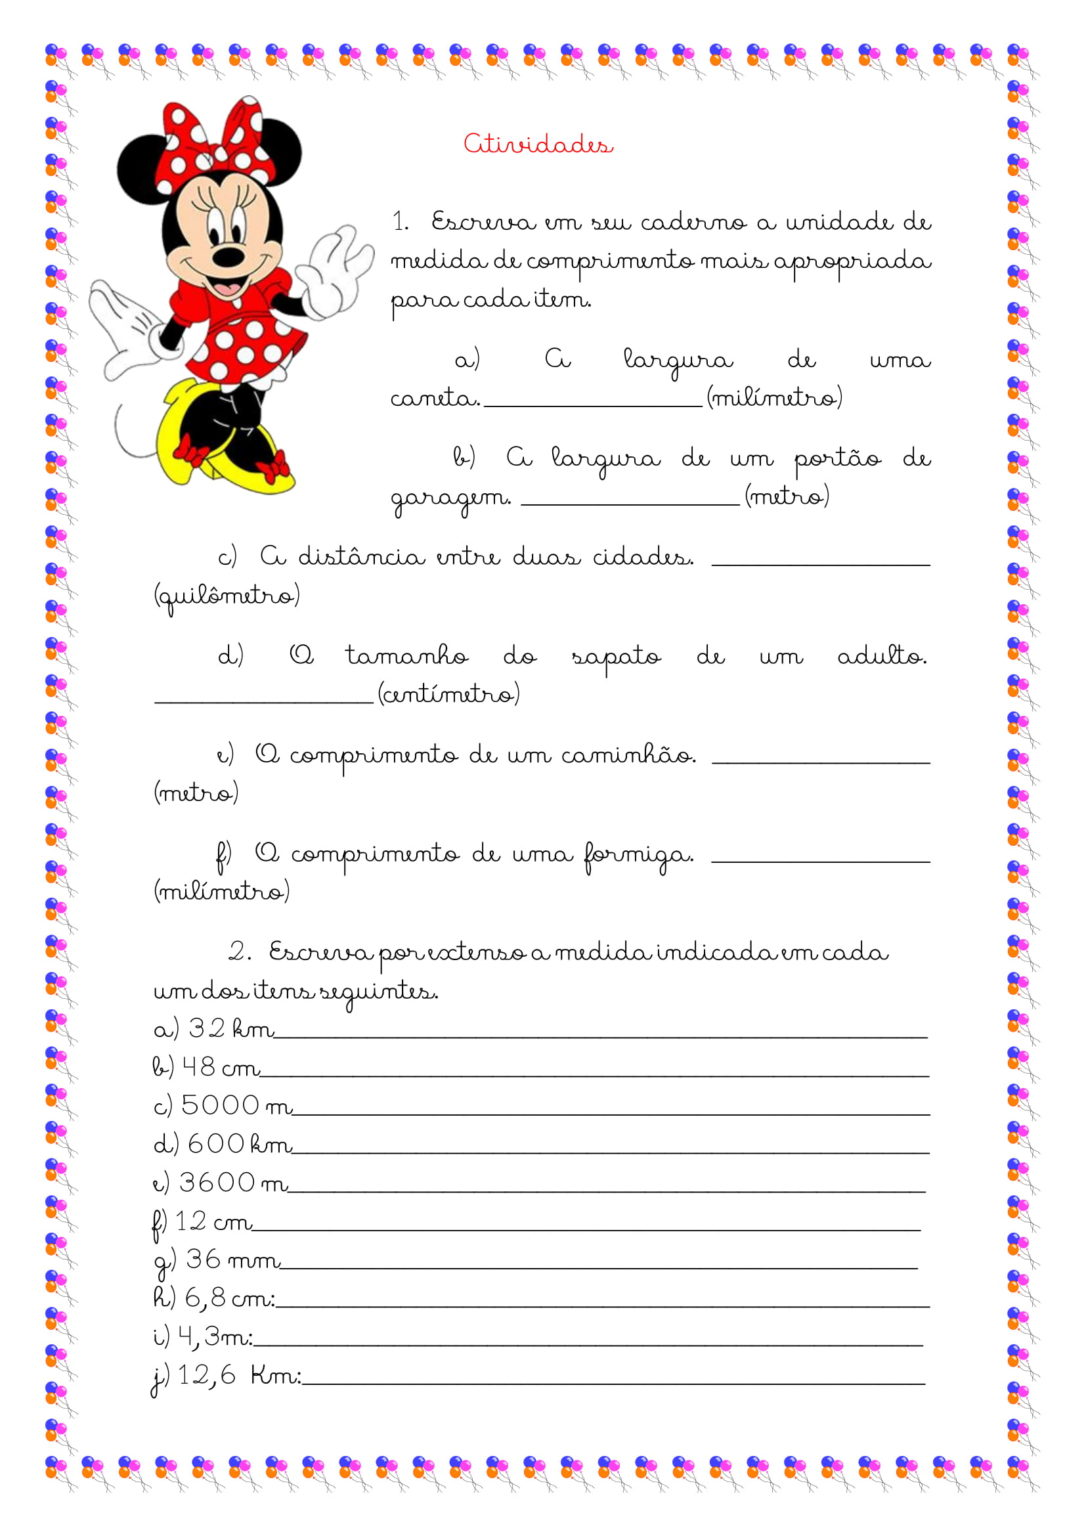 Atividades
1. Escreva em seu caderno a unidade de
medida de comprimento mais apropriada
para cada item.
a) A largura de uma
caneta.________________(milímetro)
b) A largura de um portão de
garagem. ________________(metro)
c) A distância entre duas cidades. ________________
(quilômetro)
d) O tamanho do sapato de um adulto.
________________(centímetro)
e) O comprimento de um caminhão. ________________
(metro)
f) O comprimento de uma formiga. ________________
(milímetro)
2. Escreva por extenso a medida indicada em cada
um dos itens seguintes.
a) 32 km________________________________________________
b) 48 cm________________________________________________
c) 5000 m_______________________________________________
d) 600 km_______________________________________________
e) 3600 m_______________________________________________
f) 12 cm________________________________________________
g) 36 mm_______________________________________________
h) 6,8 cm:_______________________________________________
i) 4,3m:________________________________________________
j) 12,6 Km:______________________________________________